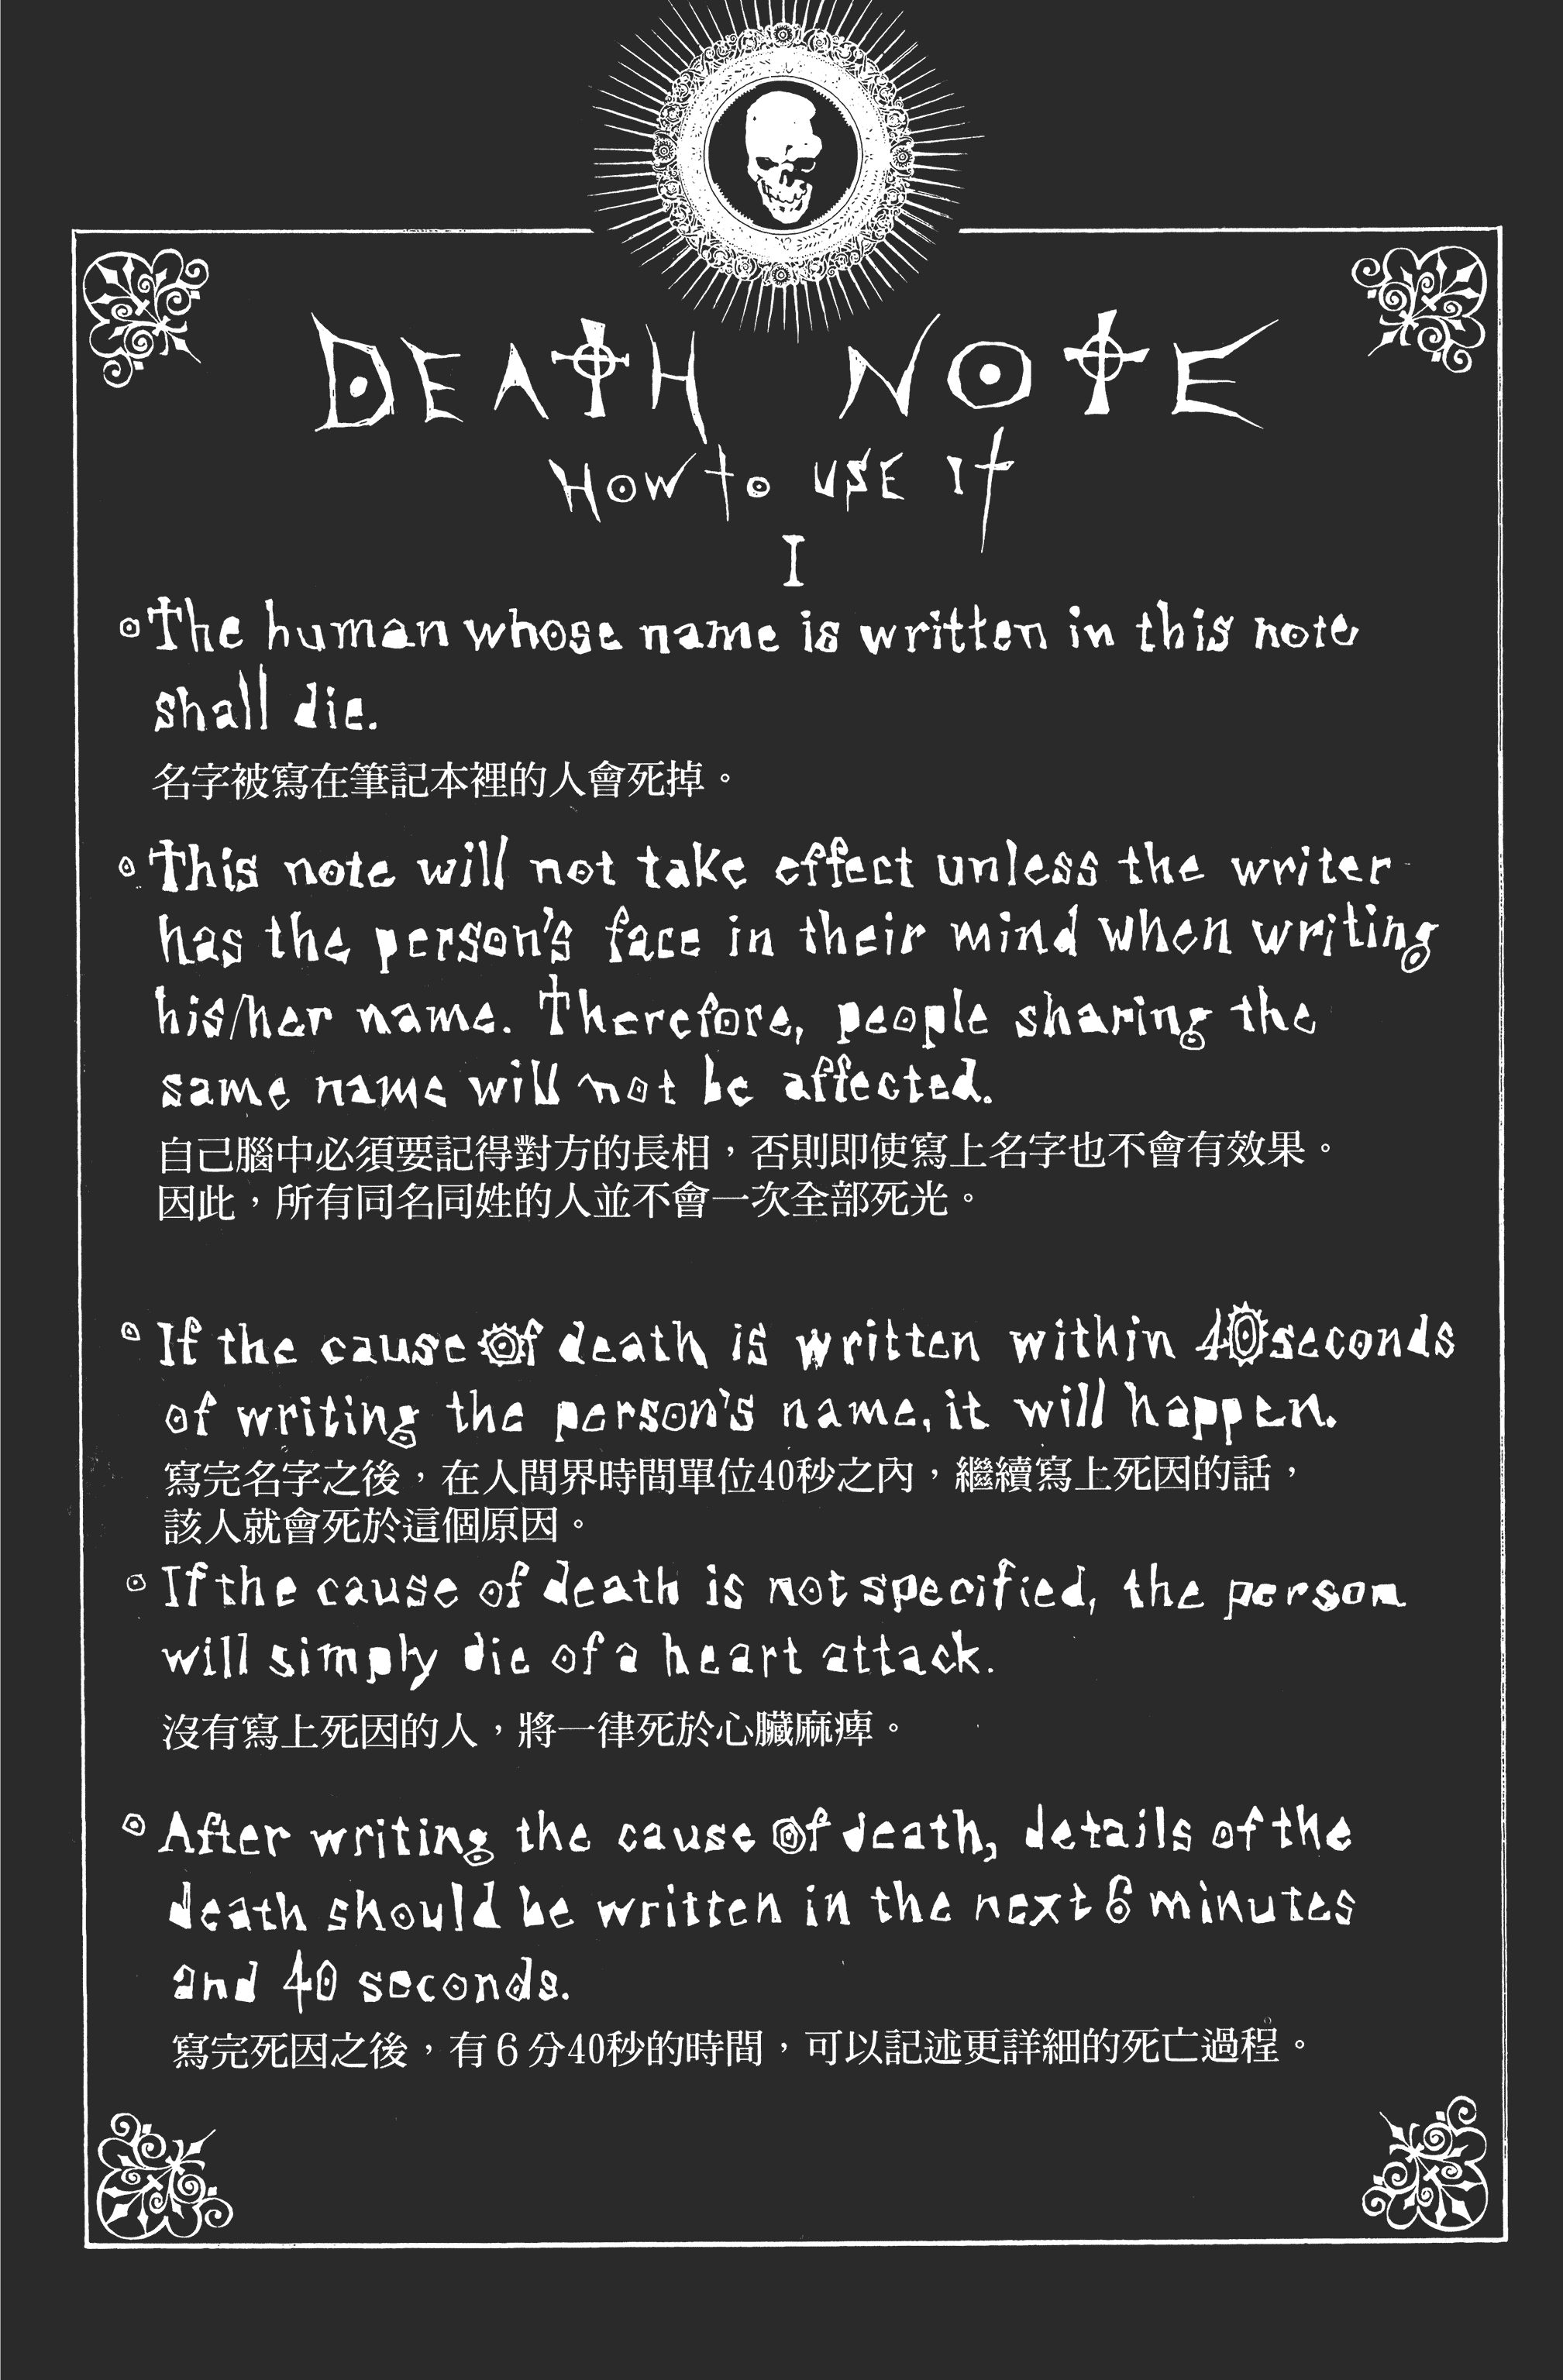 DEATH NOTE
HOW to USE It
I
The human whose name is written in this note
shall die.
名字被寫在筆記本裡的人會死掉。
This note will not take effect unless the writer
has the person's face in their mind when writing
his/her name. Therefore, people sharing the
same name will not be affected.
自己腦中必須要記得對方的長相，否則即使寫上名字也不會有效果。
因此，所有同名同姓的人並不會一次全部死光。
If the cause of death is written within 40 seconds
of writing the person's name, it will happen.
寫完名字之後，在人間界時間單位40秒之內，繼續寫上死因的話，
該人就會死於這個原因。
If the cause of death is not specified, the person
will simply die of a heart attack.
沒有寫上死因的人，將一律死於心臟麻痺。
After writing the cause of death, details of the
death should be written in the next 6 minutes
and 40 seconds.
寫完死因之後，有６分40秒的時間，可以記述更詳細的死亡過程。